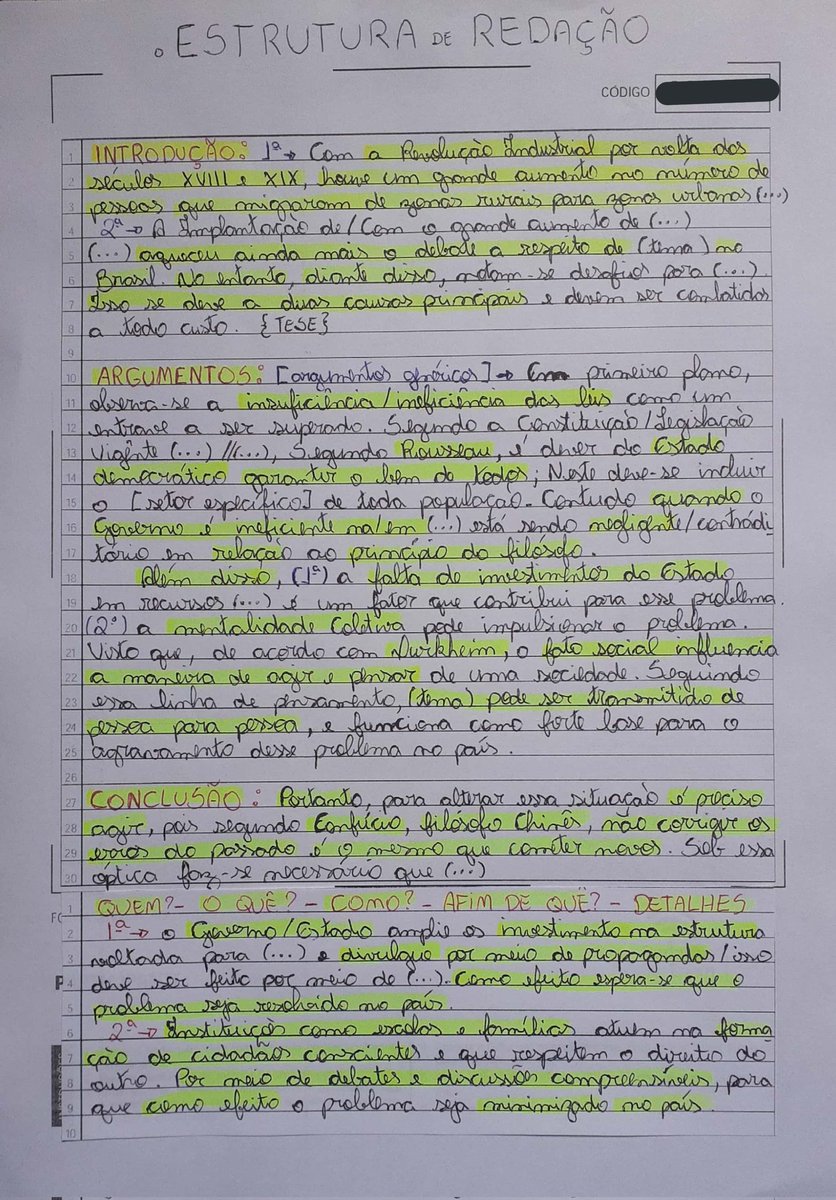 . ESTRUTURA DE REDAÇÃO
CÓDIGO
1 INTRODUÇÃO: 1ª → Com a Revolução Industrial por volta dos
2 séculos XVIII e XIX, houve um grande aumento no número de
3 pessoas que migraram de zonas rurais para zonas urbanas (...)
4 2ª → A Implantação de/Com o grande aumento de (...)
5 (...) aqueceu ainda mais o debate a respeito de (tema) no
6 Brasil. No entanto, diante disso, notam-se desafios para (...).
7 Isso se deve a duas causas principais e devem ser combatidos
8 a todo custo. {TESE}
9
10 ARGUMENTOS: [argumentos genéricos] → Em primeiro plano,
11 observa-se a insuficiência/ineficiência das leis como um
12 entrave a ser superado. Segundo a Constituição/Legislação
13 Vigente (...) //(...), Segundo Rousseau, é dever do Estado
14 democrático garantir o bem de todos; Neste deve-se incluir
15 o [setor específico] de toda população. Contudo quando o
16 Governo é ineficiente na/em (...) está sendo negligente/contrádi
17 tório em relação ao princípio do filósofo.
18 Além disso, (1ª) a falta de investimentos do Estado
19 em recursos (...) é um fator que contribui para esse problema.
20 (2ª) a mentalidade Coletiva pode impulsionar o problema.
21 Visto que, de acordo com Durkheim, o fato social influencia
22 a maneira de agir e pensar de uma sociedade. Seguindo
23 essa linha de pensamento, (tema) pode ser transmitido de
24 pessoa para pessoa, e funciona como forte base para o
25 agravamento desse problema no país.
26
27 CONCLUSÃO: Portanto, para alterar essa situação é preciso
28 agir, pois segundo Confúcio, filósofo Chinês, não corrigir os
29 erros do passado é o mesmo que cometer novos. Sob essa
30 óptica faz-se necessário que (...)
1 QUEM? - O QUÊ? - COMO? - AFIM DE QUÊ? - DETALHES
2 1ª → o Governo/Estado amplie os investimento na estrutura
3 voltada para (...) e divulgue por meio de propagandas/isso
4 deve ser feito por meio de (...). Como efeito espera-se que o
5 problema seja resolvido no país.
6 2ª → Instituições como escolas e famílias atuem na forma
7 ção de cidadãos conscientes e que respeitem o direito do
8 outro. Por meio de debates e discussões compreensíveis, para
9 que como efeito o problema seja minimizado no país.
10